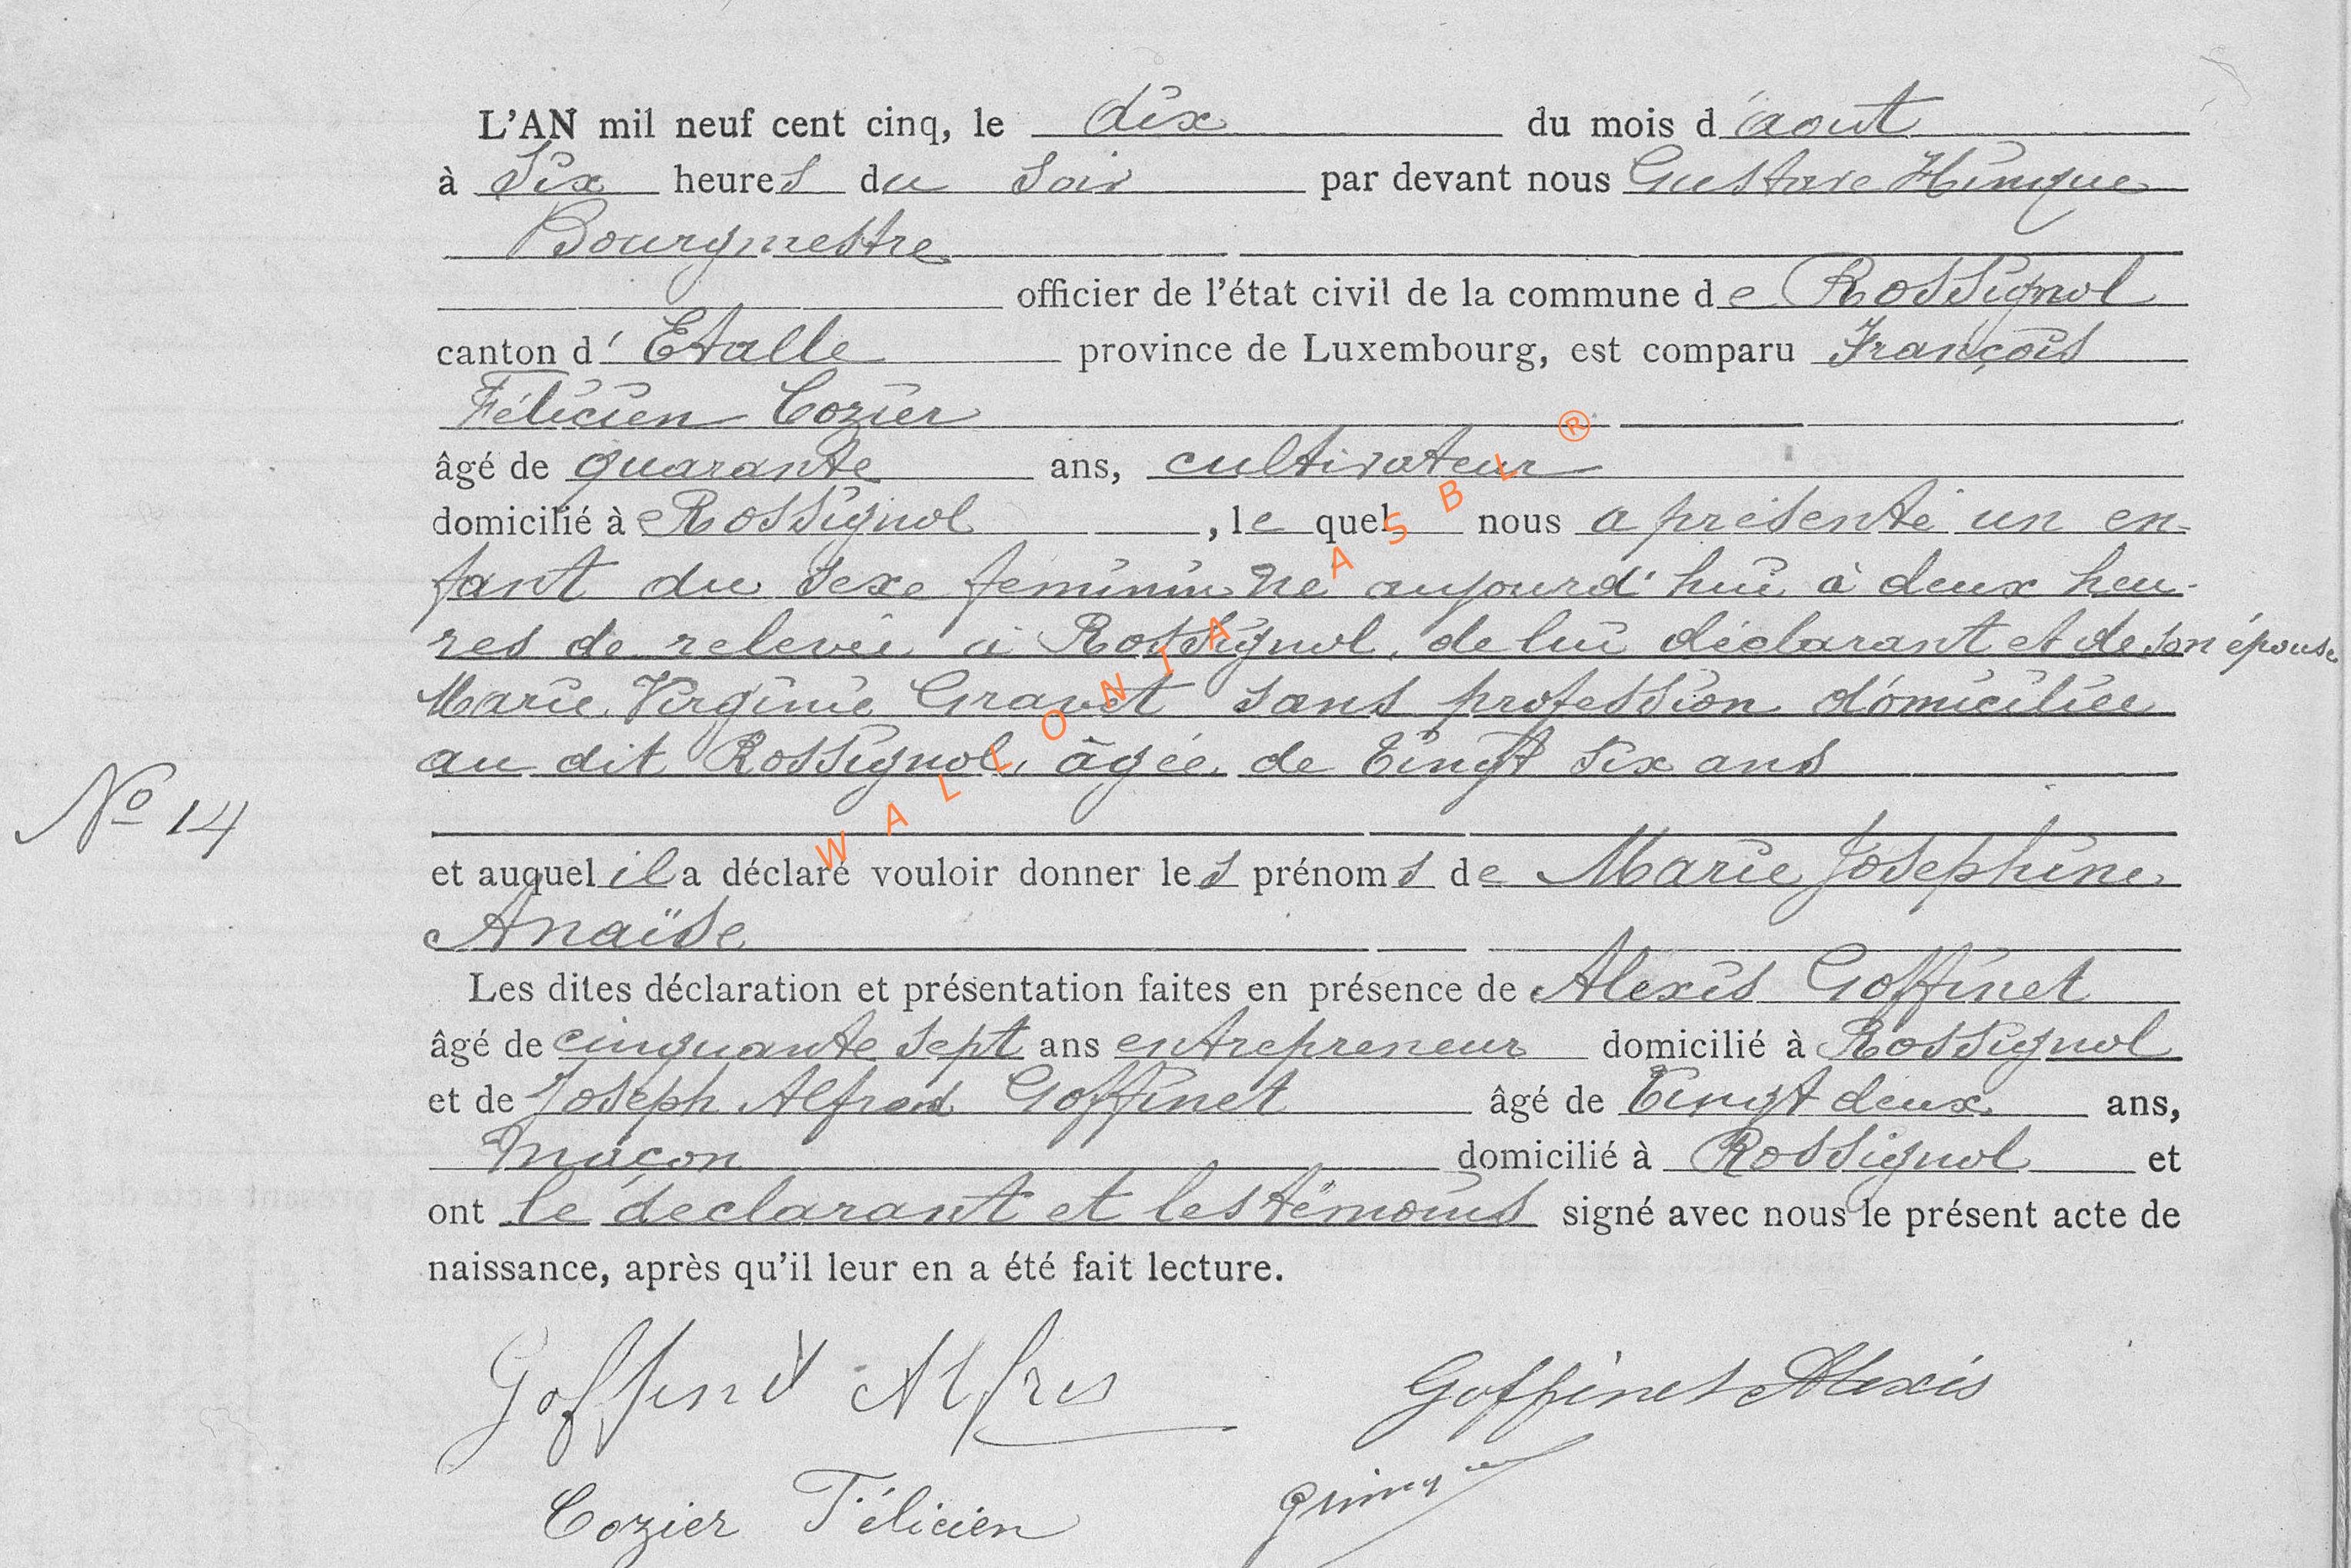 L'AN mil neuf cent cinq, le dix du mois d'aout
à Six heures du soir par devant nous Gustave Hinque
Bourgmestre
officier de l'état civil de la commune de Rossignol
canton d'Etalle province de Luxembourg, est comparu François
Félicien Cozier
âgé de quarante ans, cultivateur
domicilié à Rossignol, le quel nous a présenté un en-
fant du sexe feminin né aujourd'hui à deux heu-
res de relevée à Rossignol, de lui déclarant et de son épouse
Marie Virginie Gravet sans profession domiciliée
au dit Rossignol, âgée de vingt six ans
No 14
et auquel il a déclaré vouloir donner les prénoms de Marie Josephine
Anaïse
Les dites déclaration et présentation faites en présence de Alexis Goffinet
âgé de cinquante sept ans entrepreneur domicilié à Rossignol
et de Joseph Alfred Goffinet âgé de vingt deux ans,
maçon domicilié à Rossignol et
ont le déclarant et les témoins signé avec nous le présent acte de
naissance, après qu'il leur en a été fait lecture.
Goffinet Alfred Goffinet Alexis
Cozier Félicien
WALLONIA ASBL ®